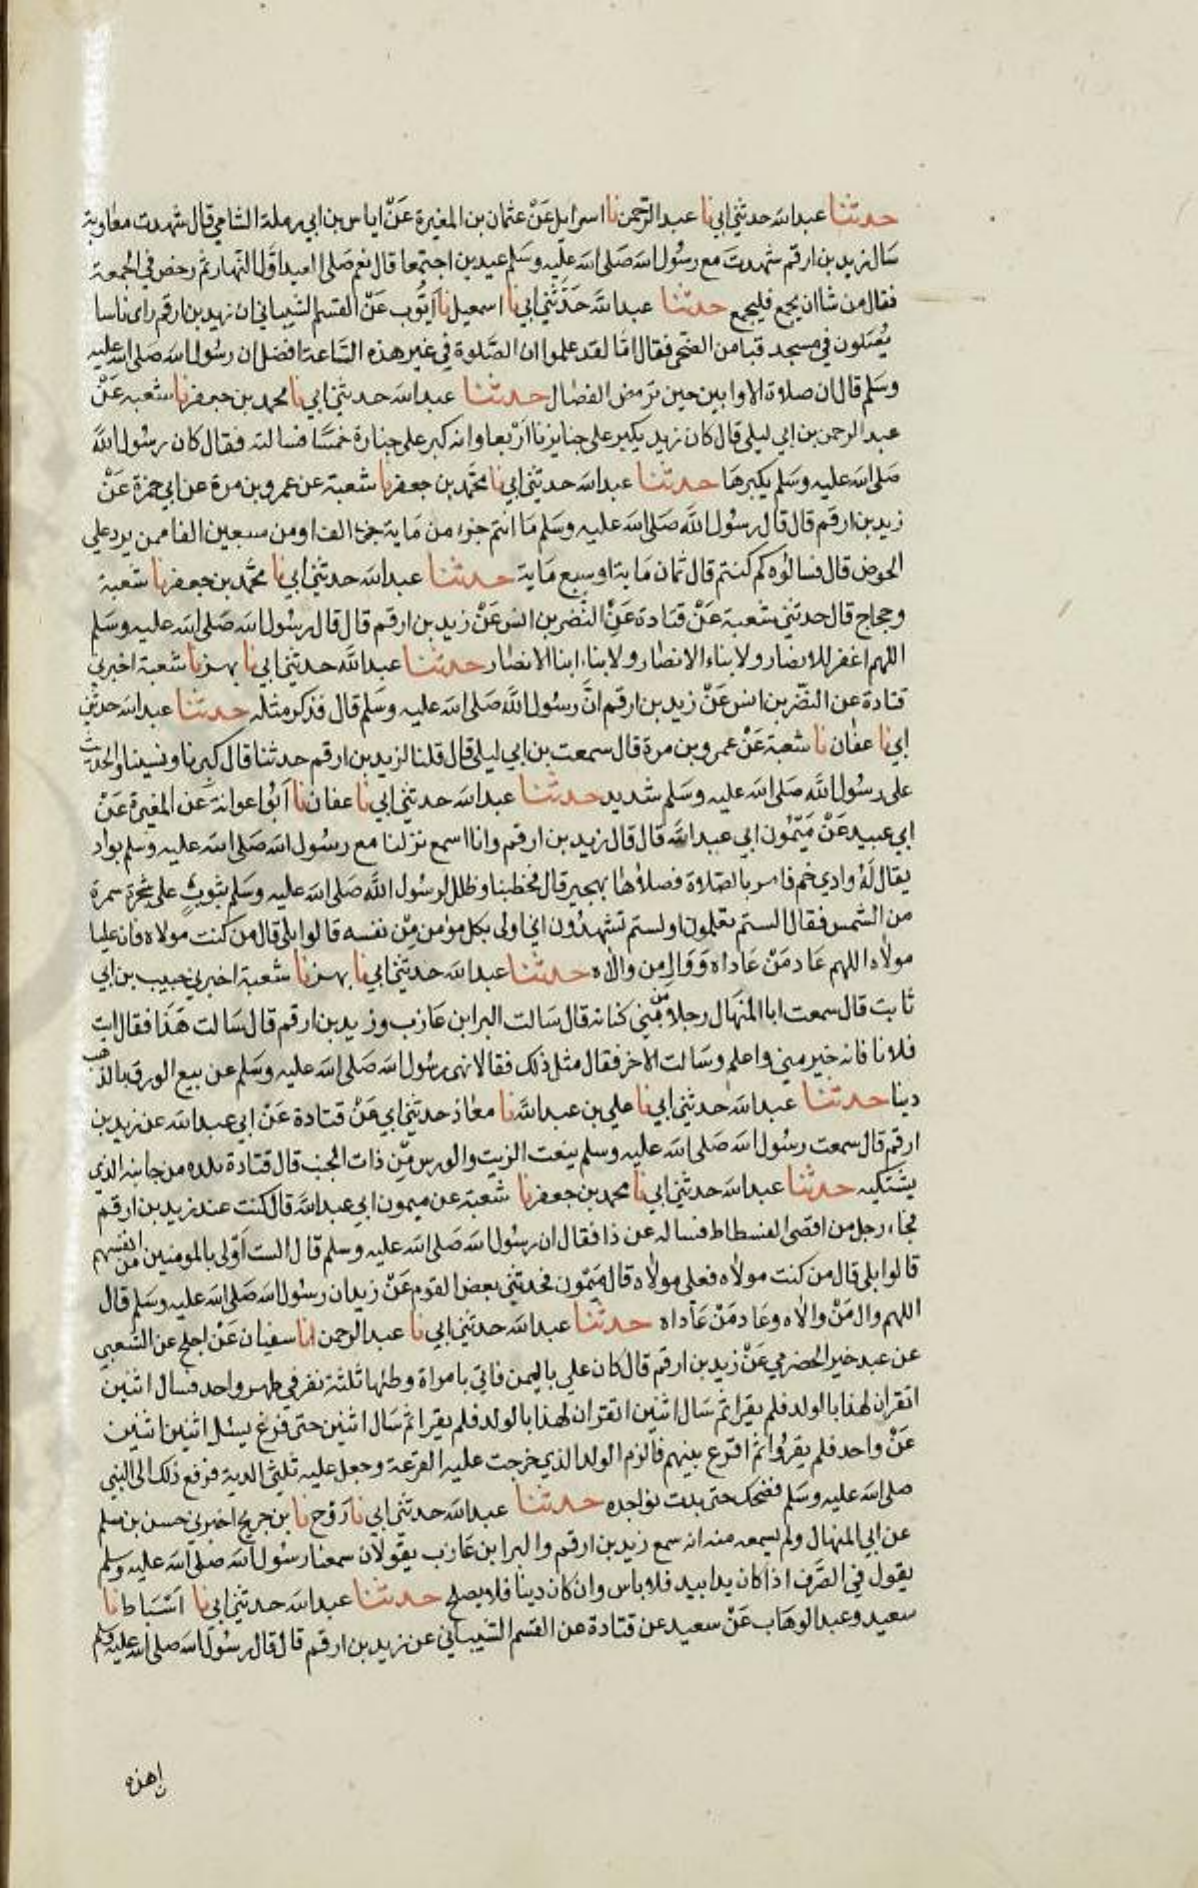 حدثنا عبد الله حدثني ابي نا عبد الرحمن نا اسرايل عن عثمان بن المغيرة عن اياس بن ابي رملة الشامي قال شهدت معاوية
سال زيد بن ارقم شهدت مع رسول الله صلى الله عليه وسلم عيدين اجتمعا قال نعم صلى العيد اول النهار ثم رخص في الجمعة
فقال من شا ان يجمع فليجمع حدثنا عبد الله حدثني ابي نا اسمعيل نا ايوب عن القسم الشيباني ان زيد بن ارقم راى ناسا
يصلون في مسجد قبا من الضحى فقال اما لقد علموا ان الصلوة في غير هذه الساعة افضل ان رسول الله صلى الله عليه
وسلم قال ان صلاة الاوابين حين ترمض الفصال حدثنا عبد الله حدثني ابي نا محمد بن جعفر نا شعبه عن
عبد الرحمن بن ابي ليلى قال كان زيد يكبر على جنايزنا اربعا وانه كبر على جنازة خمسا فسالته فقال كان رسول الله
صلى الله عليه وسلم يكبرها حدثنا عبد الله حدثني ابي نا محمد بن جعفر نا شعبة عن عمرو بن مرة عن ابي حمزة عن
زيد بن ارقم قال قال رسول الله صلى الله عليه وسلم ما انتم جزء من ماية جزء الف او من سبعين الفا ممن يرد علي
الحوض قال فسالوه كم كنتم قال ثمان ماية او سبع ماية حدثنا عبد الله حدثني ابي نا محمد بن جعفر نا شعبة
وحجاج قال حدثني شعبة عن قتادة عن النضر بن انس عن زيد بن ارقم قال قال رسول الله صلى الله عليه وسلم
اللهم اغفر للانصار ولابناء الانصار ولابناء ابنا الانصار حدثنا عبد الله حدثني ابي نا بهز نا شعبة اخبرني
قتادة عن النضر بن انس عن زيد بن ارقم ان رسول الله صلى الله عليه وسلم قال فذكر مثله حدثنا عبد الله حدثني
ابي نا عفان نا شعبة عن عمرو بن مرة قال سمعت بن ابي ليلى قال قلنا لزيد بن ارقم حدثنا قال كبرنا ونسينا والحديث
على رسول الله صلى الله عليه وسلم شديد حدثنا عبد الله حدثني ابي نا عفان نا ابو عوانة عن المغيرة عن
ابي عبيد عن ميمون ابي عبد الله قال قال زيد بن ارقم وانا اسمع نزلنا مع رسول الله صلى الله عليه وسلم بواد
يقال له وادي خم فامر بالصلاة فصلاها بهجير قال فخطبنا وظلل لرسول الله صلى الله عليه وسلم بثوب على شجرة سمرة
من الشمس فقال الستم تعلمون او لستم تشهدون اني اولى بكل مومن من نفسه قالوا بلى قال من كنت مولاه فان عليا
مولاه اللهم عاد من عاداه ووال من والاه حدثنا عبد الله حدثني ابي نا بهز نا شعبة اخبرني حبيب بن ابي
ثابت قال سمعت ابا المنهال رجلا من بني كنانه قال سالت البرا بن عازب وزيد بن ارقم قال سالت هذا فقال ايت
فلانا فانه خير مني واعلم وسالت الاخر فقال مثل ذلك فقالا نهى رسول الله صلى الله عليه وسلم عن بيع الورق بالذهب
دينا حدثنا عبد الله حدثني ابي نا علي بن عبد الله نا معاذ حدثني ابي عن قتادة عن ابي عبد الله عن زيد بن
ارقم قال سمعت رسول الله صلى الله عليه وسلم ينعت الزيت والورس من ذات الجنب قال قتادة يلده من جانبه الذي
يشتكيه حدثنا عبد الله حدثني ابي نا محمد بن جعفر نا شعبة عن ميمون ابي عبد الله قال كنت عند زيد بن ارقم
فجاء رجل من اقصى الفسطاط فساله عن ذا فقال ان رسول الله صلى الله عليه وسلم قال الست اولى بالمومنين من انفسهم
قالوا بلى قال من كنت مولاه فعلي مولاه قال ميمون فحدثني بعض القوم عن زيد ان رسول الله صلى الله عليه وسلم قال
اللهم وال من والاه وعاد من عاداه حدثنا عبد الله حدثني ابي نا عبد الرحمن انا سفيان عن اجلح عن الشعبي
عن عبد خير الحضرمي عن زيد بن ارقم قال كان علي باليمن فاتي بامراة وطئها ثلثة نفر في طهر واحد فسال اثنين
اتقران لهذا بالولد فلم يقرا ثم سال اثنين اتقران لهذا بالولد فلم يقرا ثم سال اثنين حتى فرغ يسئل اثنين اثنين
عن واحد فلم يقروا ثم اقرع بينهم فالزم الولد الذي خرجت عليه القرعة وجعل عليه ثلثي الدية فرفع ذلك الى النبي
صلى الله عليه وسلم فضحك حتى بدت نواجذه حدثنا عبد الله حدثني ابي نا روح نا بن جريج اخبرني حسن بن مسلم
عن ابي المنهال ولم يسمعه منه انه سمع زيد بن ارقم والبرا بن عازب يقولان سمعنا رسول الله صلى الله عليه وسلم
يقول في الصرف اذا كان يدا بيد فلا باس وان كان دينا فلا يصلح حدثنا عبد الله حدثني ابي نا اسباط نا
سعيد وعبد الوهاب عن سعيد عن قتادة عن القسم الشيباني عن زيد بن ارقم قال قال رسول الله صلى الله عليه وسلم
ان هذه